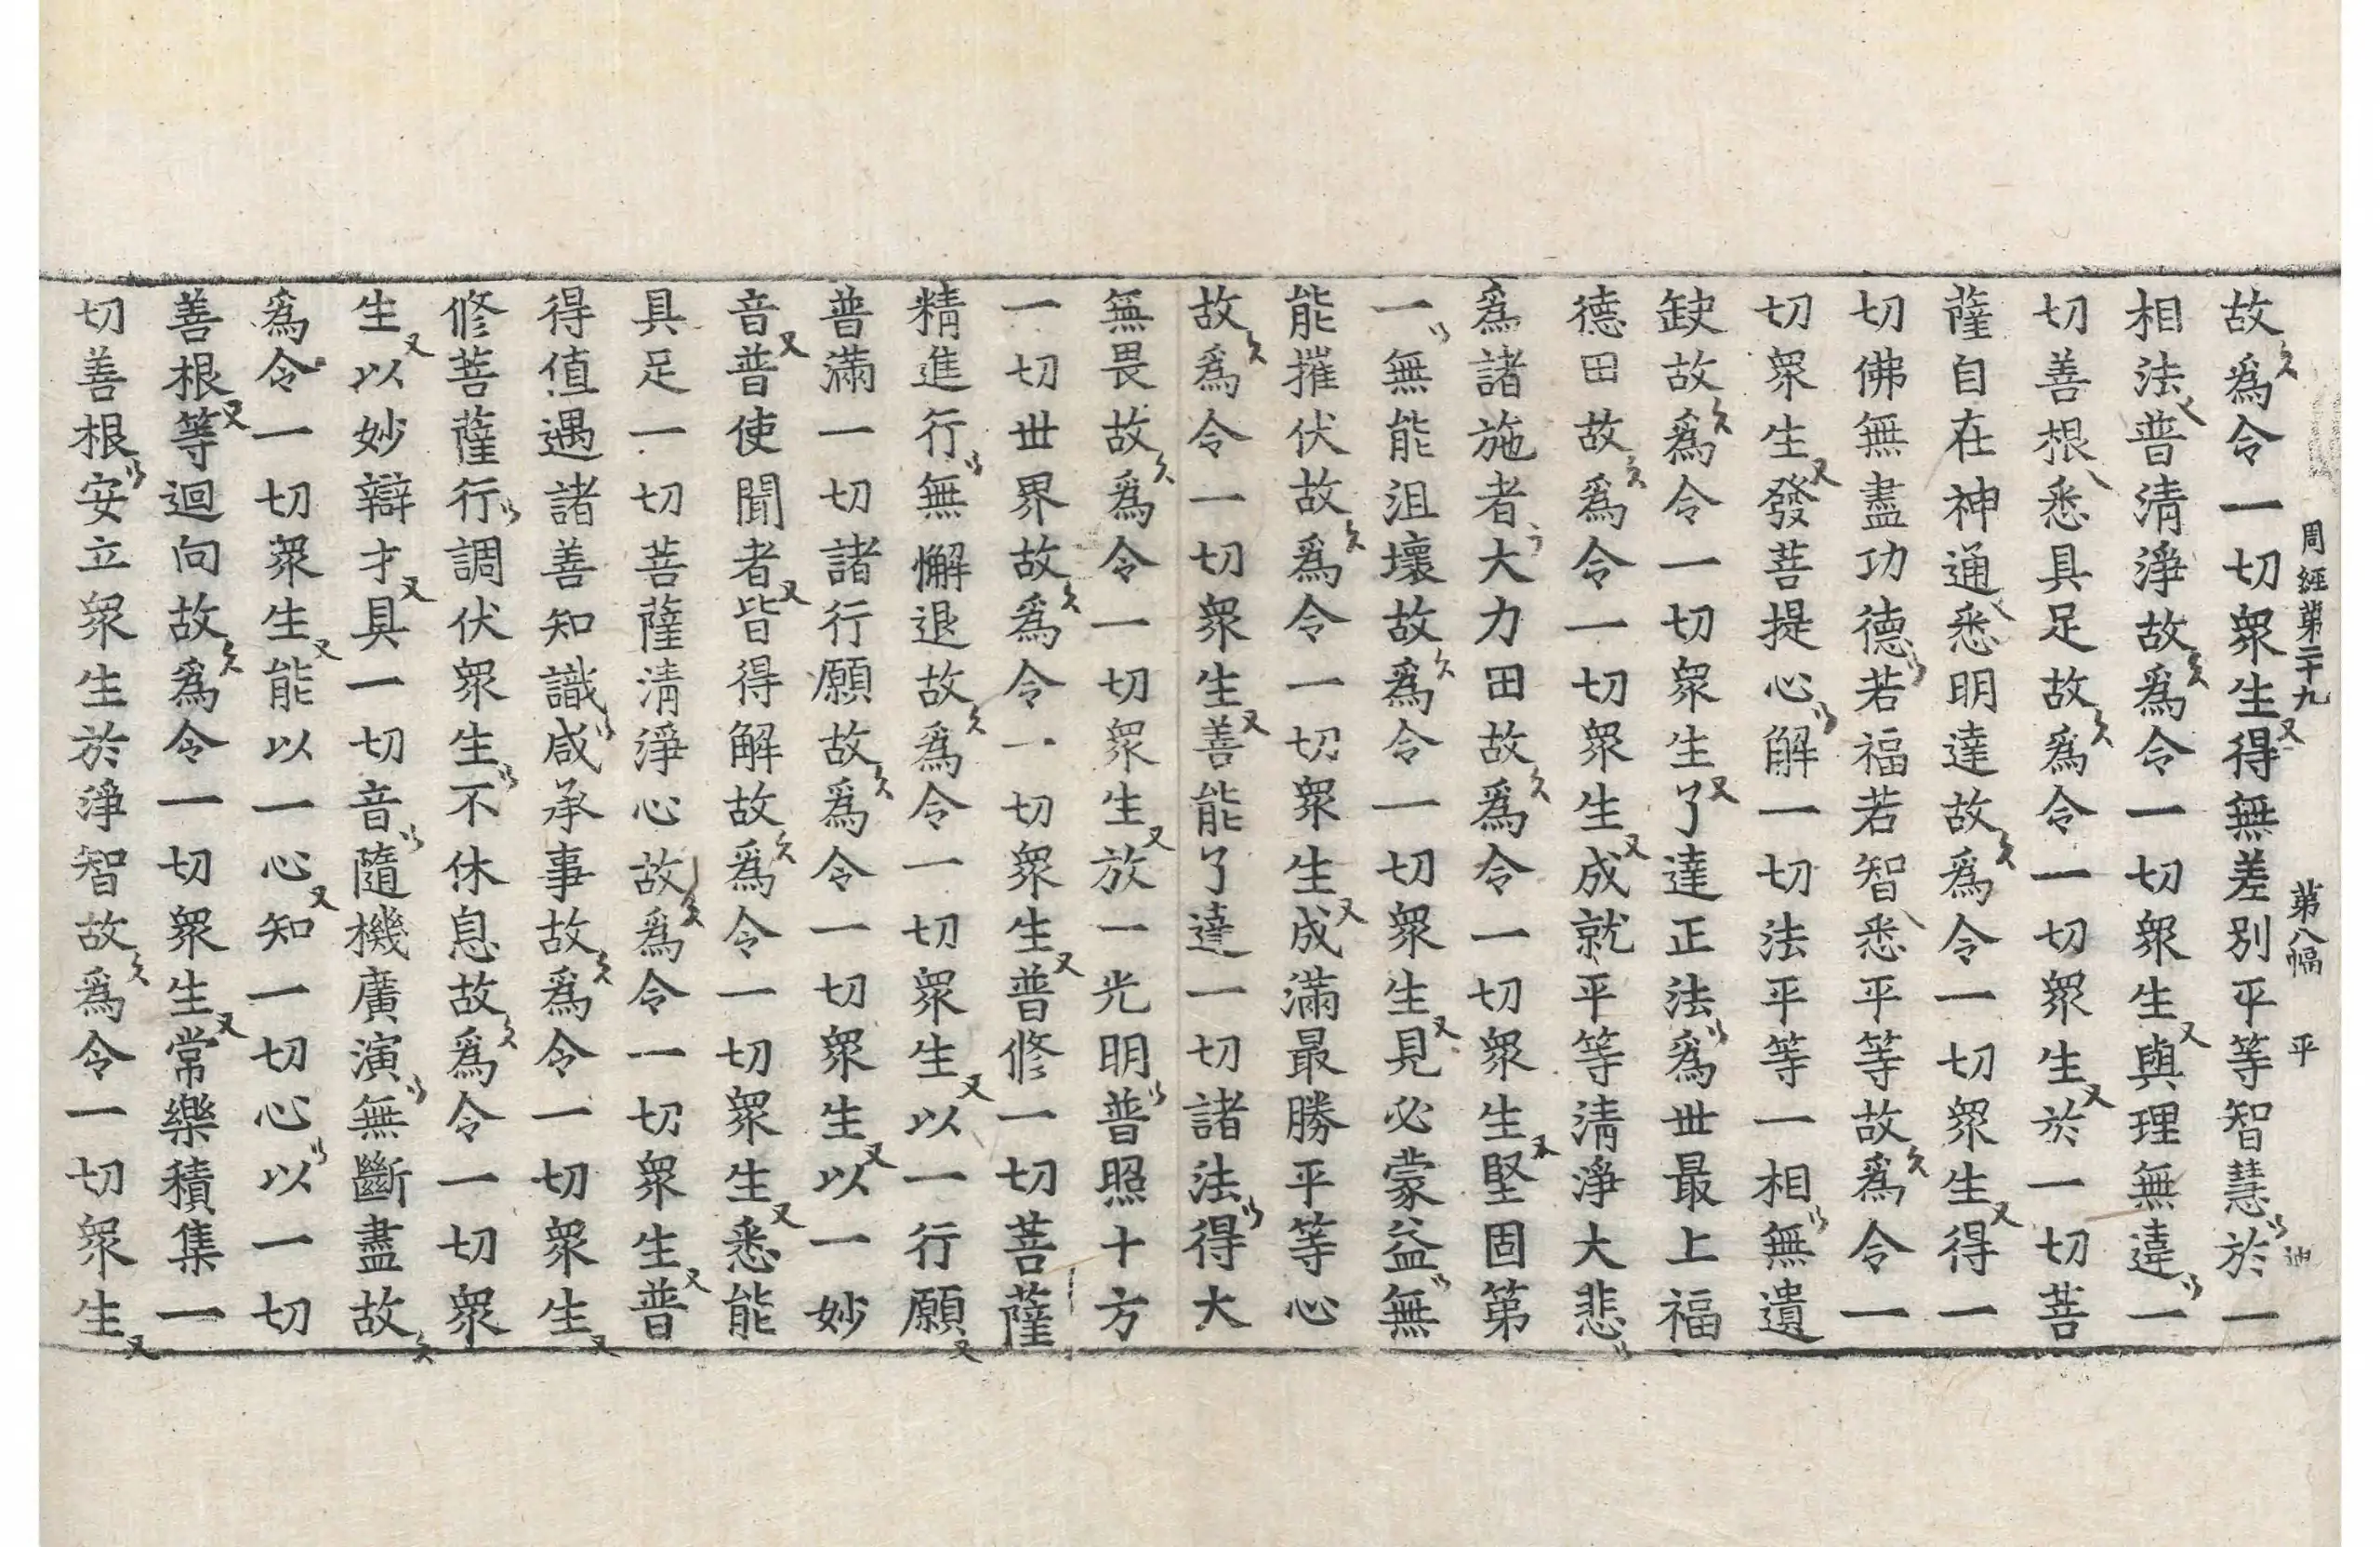 周經第二十九 第八幅 平
故爲令一切衆生得無差別平等智慧於一
相法普清淨故爲令一切衆生與理無違一
切善根悉具足故爲令一切衆生於一切菩
薩自在神通悉明達故爲令一切衆生得一
切佛無盡功德若福若智悉平等故爲令一
切衆生發菩提心解一切法平等一相無遺
缺故爲令一切衆生了達正法爲世最上福
德田故爲令一切衆生成就平等清淨大悲
爲諸施者大力田故爲令一切衆生堅固第
一無能沮壞故爲令一切衆生見必蒙益無
能摧伏故爲令一切衆生成滿最勝平等心
故爲令一切衆生善能了達一切諸法得大
無畏故爲令一切衆生放一光明普照十方
一切世界故爲令一切衆生普修一切菩薩
精進行無懈退故爲令一切衆生以一行願
普滿一切諸行願故爲令一切衆生以一妙
音普使聞者皆得解故爲令一切衆生悉能
具足一切菩薩清淨心故爲令一切衆生普
得值遇諸善知識咸承事故爲令一切衆生
修菩薩行調伏衆生不休息故爲令一切衆
生以妙辯才具一切音隨機廣演無斷盡故
爲令一切衆生能以一心知一切心以一切
善根等迴向故爲令一切衆生常樂積集一
切善根安立衆生於淨智故爲令一切衆生